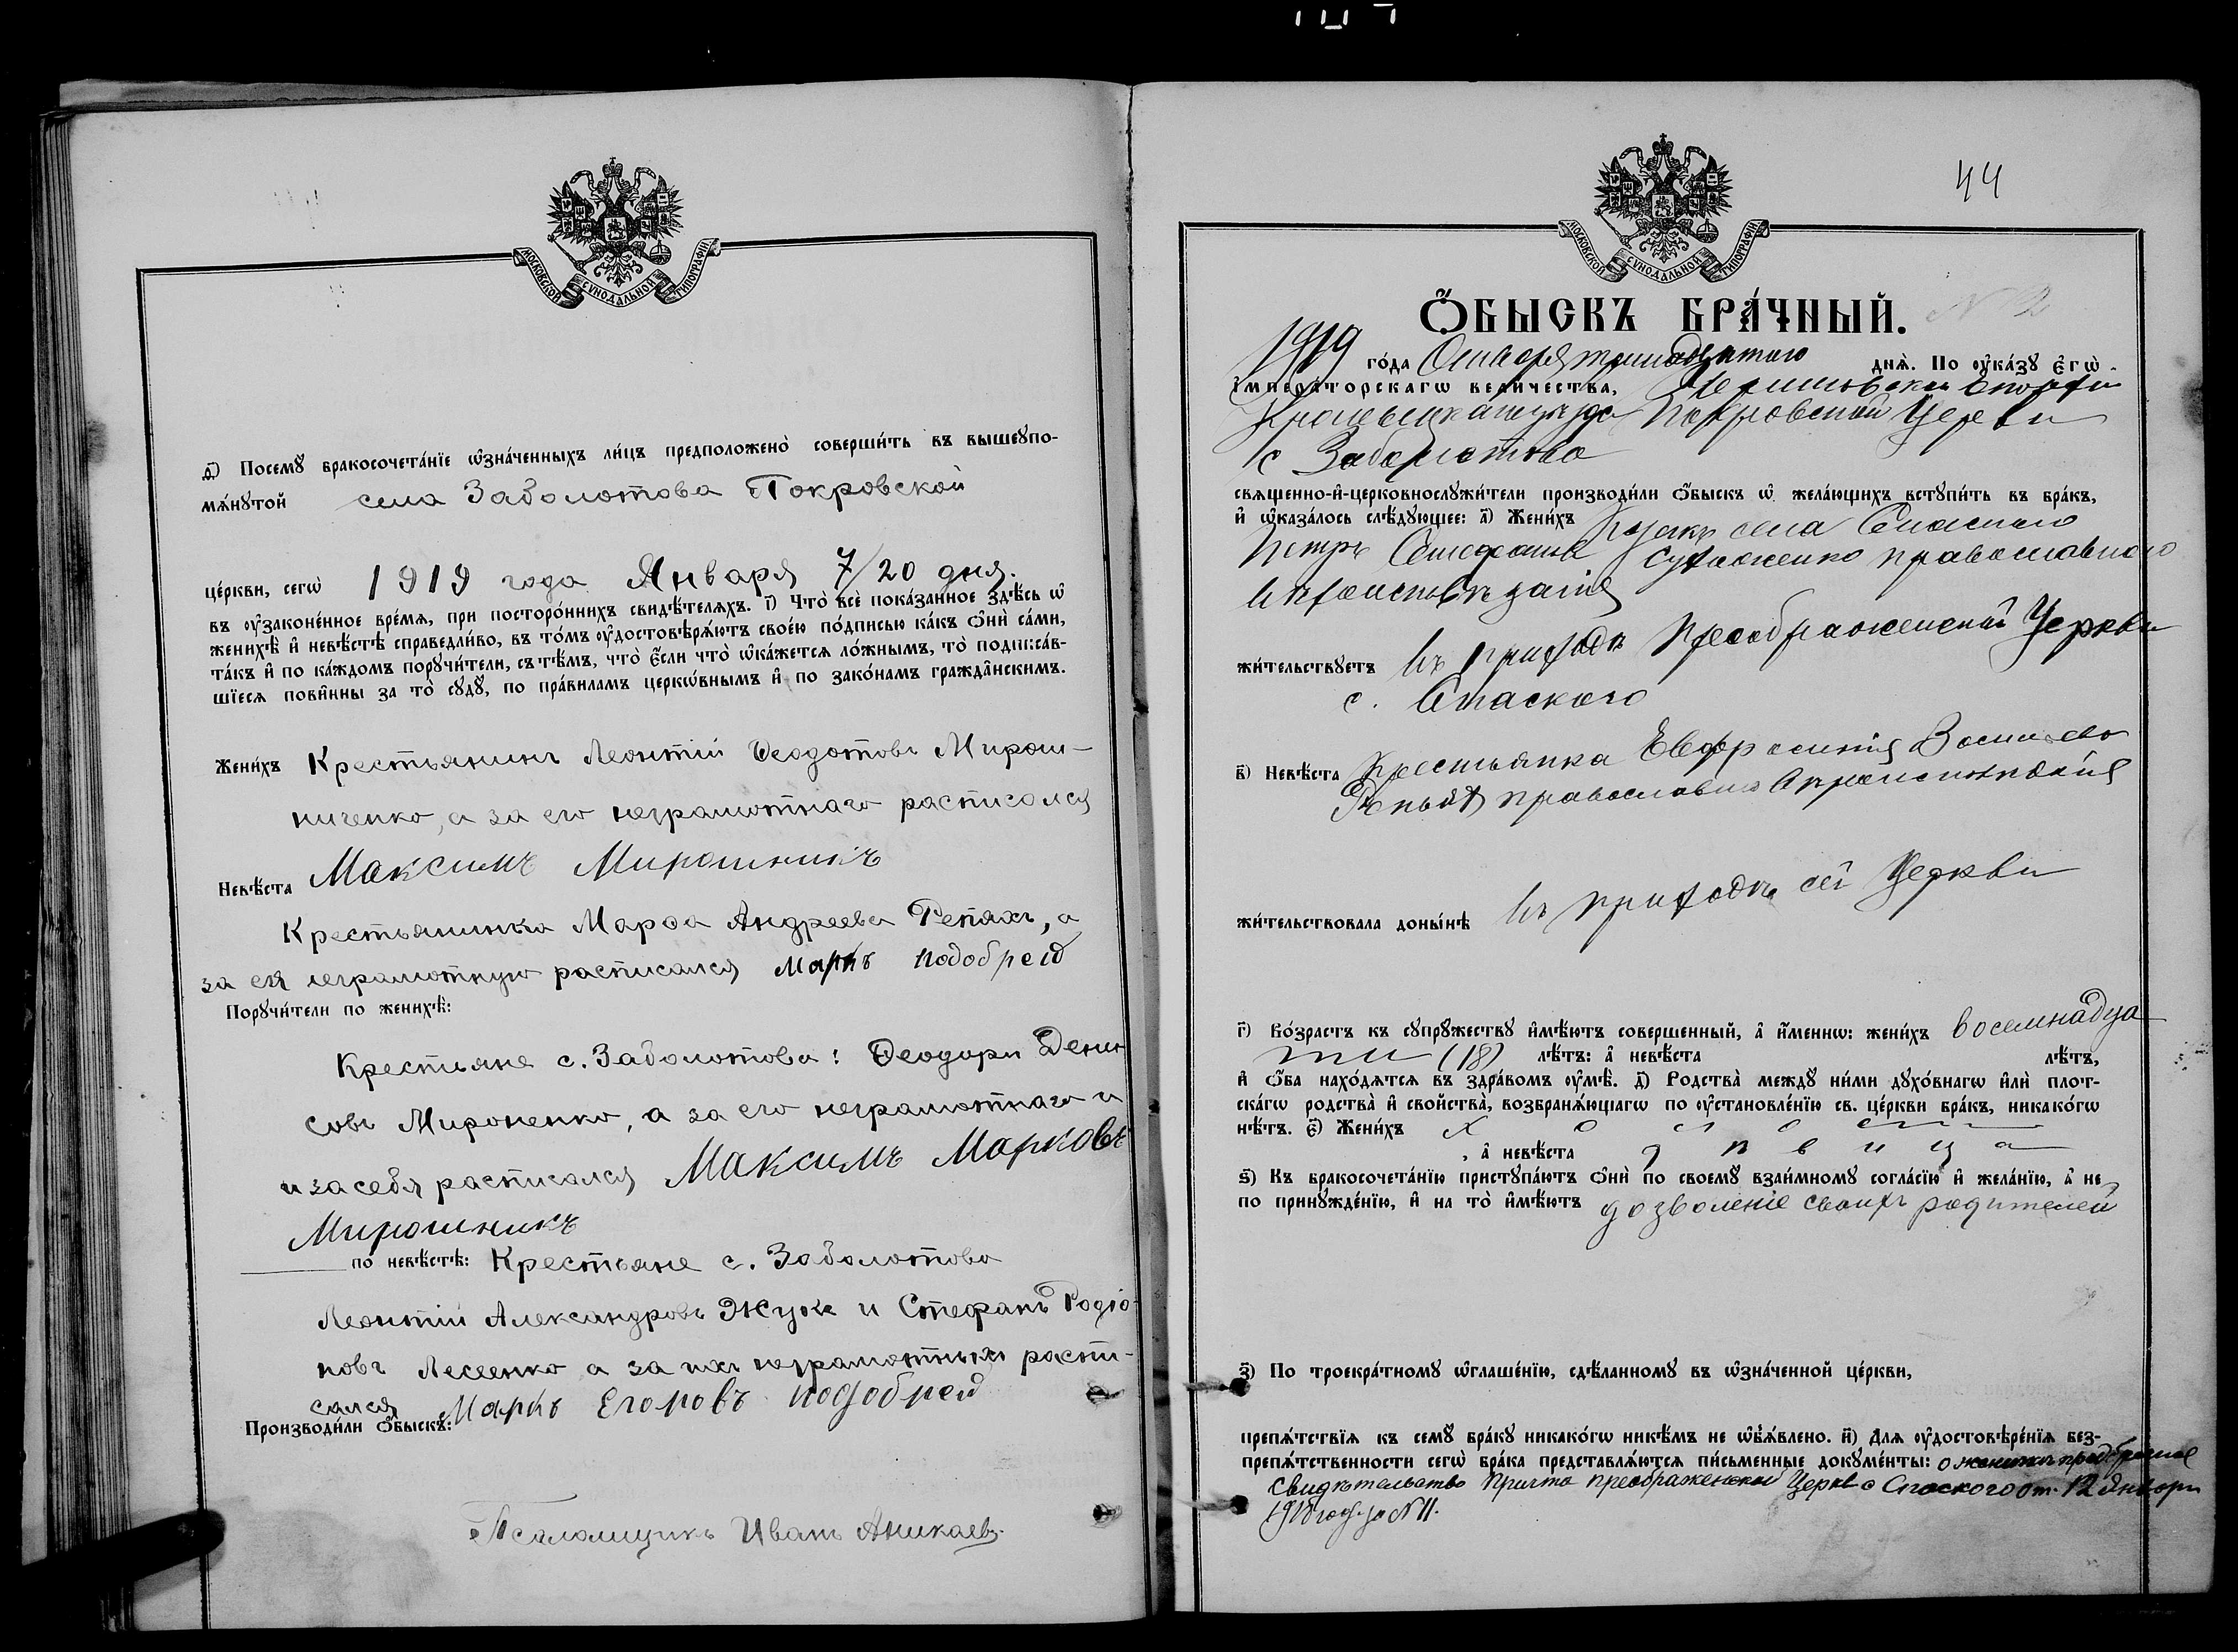 МОСКОВСКОЙ СѴНОДАЛЬНОЙ ТИПОГРАФІИ
д҃) Посемꙋ̀ бракосочета́нїе ѡ҆зна́ченныхъ ли́цъ предположено̀ соверши́ть въ вышеꙋпо-
мѧ́нꙋтой села Заболотова Покровской
це́ркви, сегѡ̀ 1919 года Января 7/20 дня.
въ ᲂу҆законе́нное вре́мѧ, при посторо́ннихъ свидѣ́телѧхъ. і҃) Что̀ всѐ пока́занное здѣ́сь ѡ҆
женихѣ̀ и҆ невѣ́стѣ справедли́во, въ то́мъ ᲂу҆достовѣрѧ́ютъ свое́ю по́дписью ка́къ ѻ҆нѝ са́ми,
та́къ и҆ по ка́ждомъ порꙋчи́тели, съ тѣ́мъ, что̀ є҆́сли что̀ ѡ҆ка́жетсѧ ло́жнымъ, то̀ подписа́в-
шїесѧ пови́нны за то̀ сꙋдꙋ̀, по пра́виламъ церко́внымъ и҆ по зако́намъ гражда́нскимъ.
Жени́хъ Крестьянинъ Леонтій Ѳеодотовъ Мирош-
ниченко, а за его неграмотнаго расписался
Максимъ Мирошникъ
Невѣ́ста
Крестьянинка Марѳа Андреева Репяхъ, а
за ея неграмотную расписался Маркъ Подобрей
Порꙋчи́тели по женихѣ̀:
Крестьяне с. Заболотова: Ѳеодоръ Денис
совъ Мироненко, а за его неграмотнаго и
и за себя расписался Максимъ Марковъ
Мирошникъ
по невѣ́стѣ: Крестьяне с. Заболотова
Леонтій Александровъ Жукъ и Стефанъ Родіо-
новъ а за ихъ неграмотныхъ распи-
сался Маркъ Егоровъ Подобрей
Производи́ли ѻ҆́быскъ:
Псаломщикъ Иванъ Аникаевъ.
44
МОСКОВСКОЙ СѴНОДАЛЬНОЙ ТИПОГРАФІИ
Ѻ҆́БЫСКЪ БРА́ЧНЫЙ. N 2
1919 го́да днѧ̀. По ᲂу҆ка́зꙋ є҆гѡ̀
і҆мпера́торскагѡ вели́чества, Черниговской Епархіи
Кролевецкаго уѣзда Покровской Церкви
с Заболотова
свѧще́нно-и҆-церковнослꙋжи́тели производи́ли ѻ҆́быскъ ѡ҆ жела́ющихъ встꙋпи́ть въ бра́къ,
и҆ ѡ҆каза́лось слѣ́дꙋющее: а҃) Жени́хъ Казакъ села Спаскаго
Петръ Стефановъ православнаго
вѣроисповѣданія
жи́тельствꙋетъ въ приходѣ Преображенской Церкви
с. Спаского
в҃) Невѣ́ста Крестьянка Евфросинія
православнаго вѣроисповѣданія
жи́тельствовала доны́нѣ въ приходѣ сей Церкви
г҃) Во́зрастъ къ сꙋпрꙋ́жествꙋ и҆мѣ́ютъ соверше́нный, а҆ и҆́меннѡ: жени́хъ восемнадца
ти (18) лѣ́тъ: а҆ невѣ́ста лѣ́тъ,
и҆ ѻ҆́ба нахо́дѧтсѧ въ здра́вомъ ᲂу҆мѣ̀. д҃) Родства̀ междꙋ ни́ми дꙋхо́внагѡ и҆лѝ плот-
ска́гѡ родства̀ и҆ свойства̀, возбранѧ́ющагѡ по ᲂу҆становле́нїю св. це́ркви бра́къ, никако́гѡ
нѣ́тъ. є҃) Жени́хъ холостъ
, а҆ невѣ́ста дѣвица
ѕ҃) Къ бракосочета́нїю пристꙋпа́ютъ ѻ҆нѝ по своемꙋ̀ взаи́мномꙋ согла́сїю и҆ жела́нїю, а҆ не
по принꙋжде́нїю, и҆ на то̀ и҆мѣ́ютъ дозволеніе своихъ родителей
з҃) По троекра́тномꙋ ѡ҆глаше́нїю, сдѣ́ланномꙋ въ ѡ҆зна́ченной це́ркви,
препѧ́тствїѧ къ семꙋ̀ бра́кꙋ никако́гѡ никѣ́мъ не ѡ҆б̾ѧ́влено. и҃) Длѧ ᲂу҆достовѣре́нїѧ без-
препѧ́тственности сегѡ̀ бра́ка представлѧ́ютсѧ пи́сьменные докꙋме́нты: о женихѣ предбрачное
свидѣтельство Причта Преображенской Церкв с Спаского от. 12 Января
за N 11.